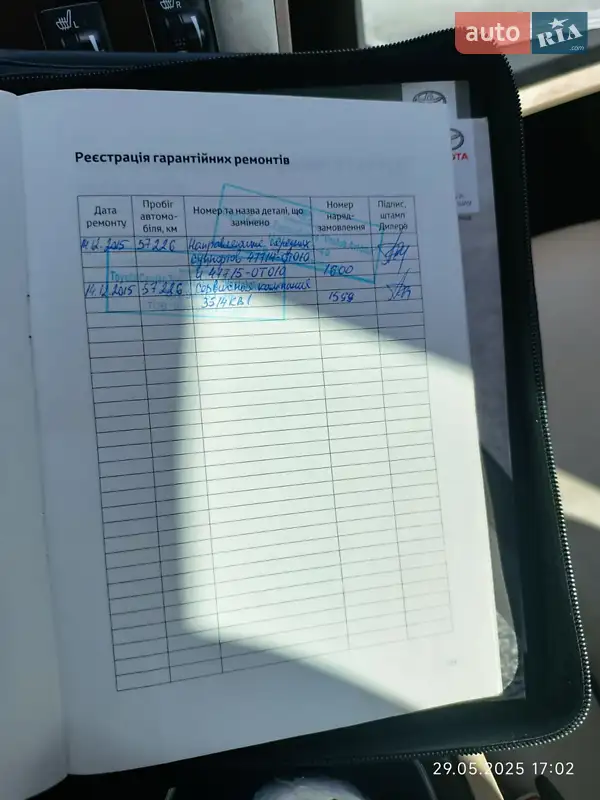 L
R
auto RIA .com
TOYOTA
Реєстрація гарантійних ремонтів
Дата ремонту
Пробіг автомо-біля, км
Номер та назва деталі, що замінено
Номер наряд-замовлення
Підпис, штамп Дилера
14.12.2015 57226 Направляющие передних
суппортов 47714-0T010
и 47715-0T010 1600
14.12.2015 57226 Сервисная кампания 1599
29.05.2025 17:02